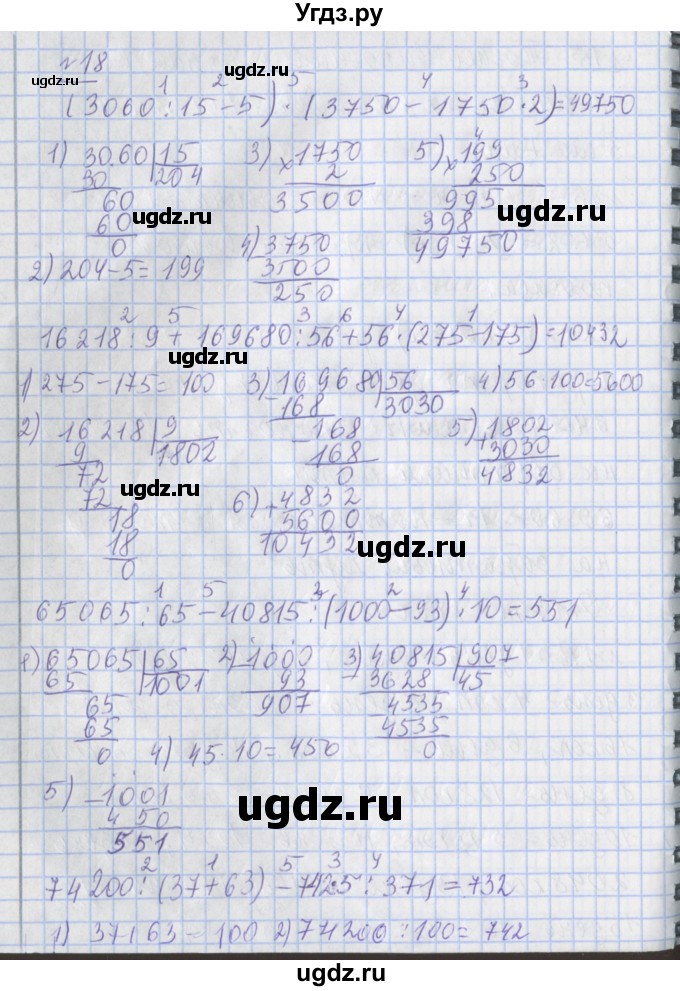 Угдз.ру
№18
1 2 5 4 3
(3060:15-5)·(3750-1750·2)=49750
1) 3060|15 3) ×1750 5) ×199
30 204 2 250
60 3500 995
60 398
0 4) 3750 49750
2) 204-5=199 3500
250
2 5 3 6 4 1
16218:9+169680:56+56·(275-175)=10432
1) 275-175=100 3) 169680|56 4) 56·100=5600
168 3030
2) 16218|9 168 5) +1802
9 1802 168 3030
72 0 4832
72 6) +4832
18 5600
18 10432
0
1 5 3 2 4
65065:65-40815:(1000-93)·10=551
1) 65065|65 2) -1000 3) 40815|907
65 1001 93 3628 45
65 907 4535
65 4535
0 4) 45·10=450 0
5) -1001
450
551
2 1 5 3 4
74200:(37+63)-742·5:371=732
1) 37+63=100 2) 74200:100=742
ugdz.ru
ugdz.ru
ugdz.ru
ugdz.ru
ugdz.ru
ugdz.ru
ugdz.ru
ugdz.ru
ugdz.ru
ugdz.ru
ugdz.ru